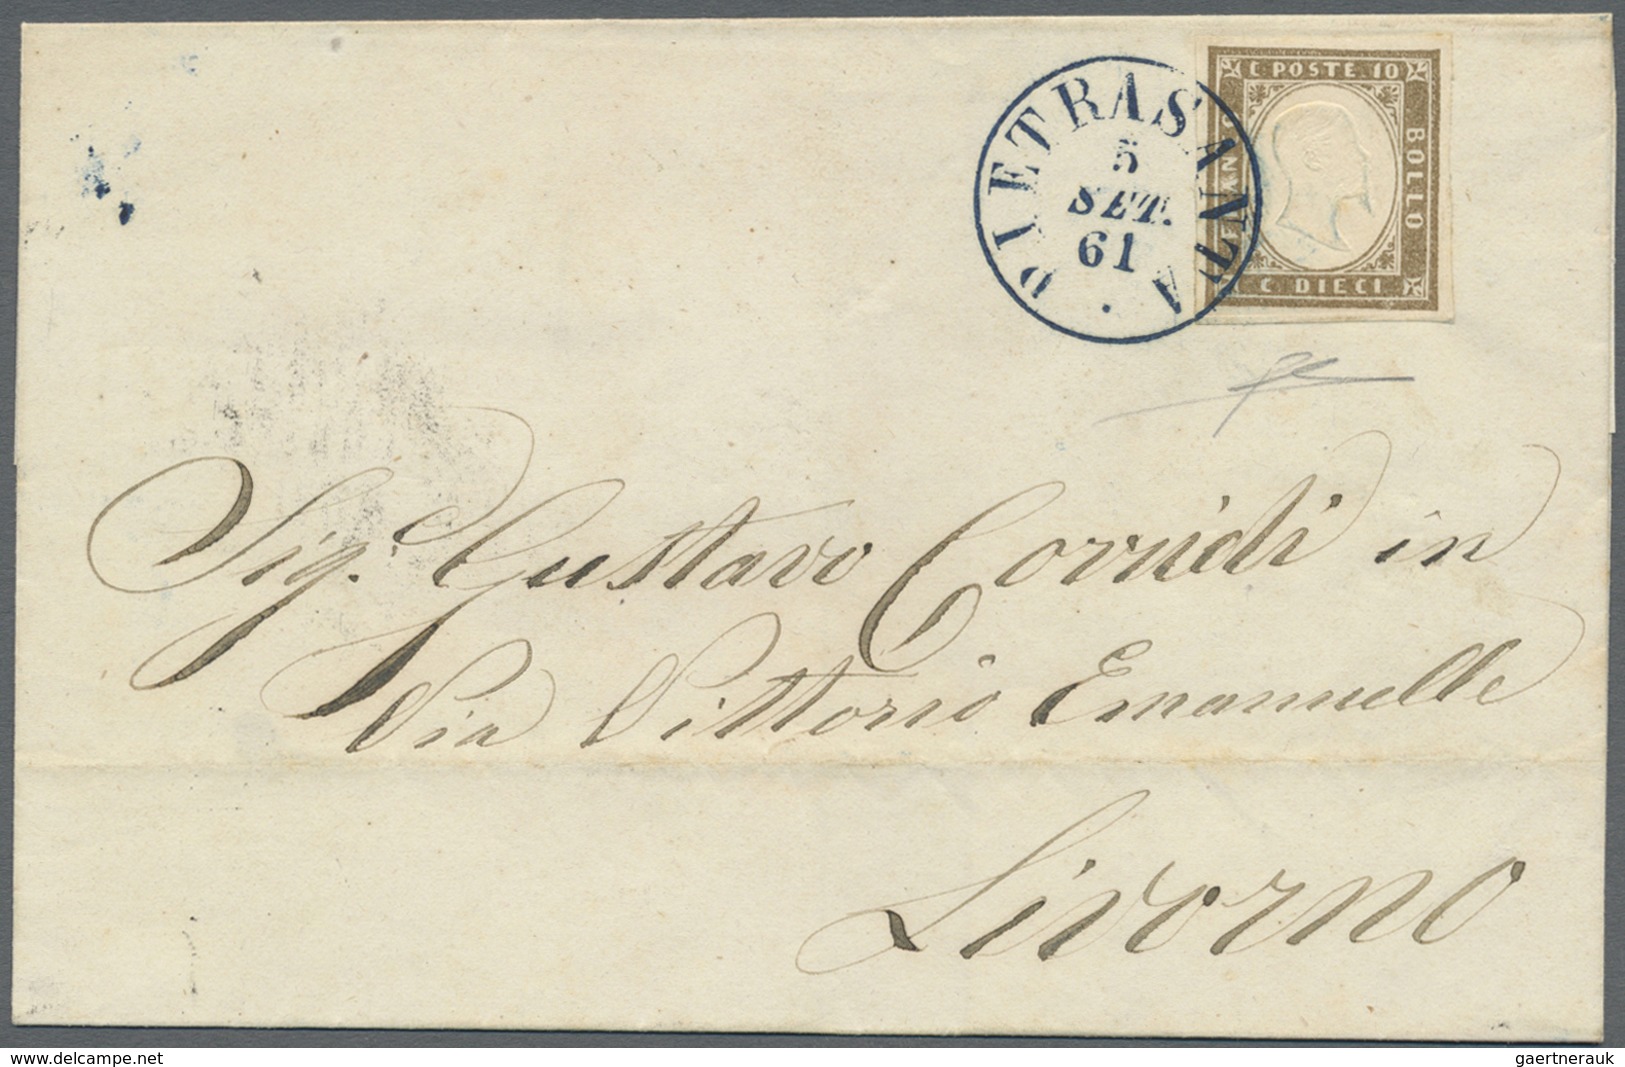 C. POSTE 10
BOLLO
C. DIECI
PIETRASANTA
5
SET.
61
Sig.e Gustavo Corridi in
Via Vittorio Emanuelle
Livorno
www.delcampe.net
gaertnerauk